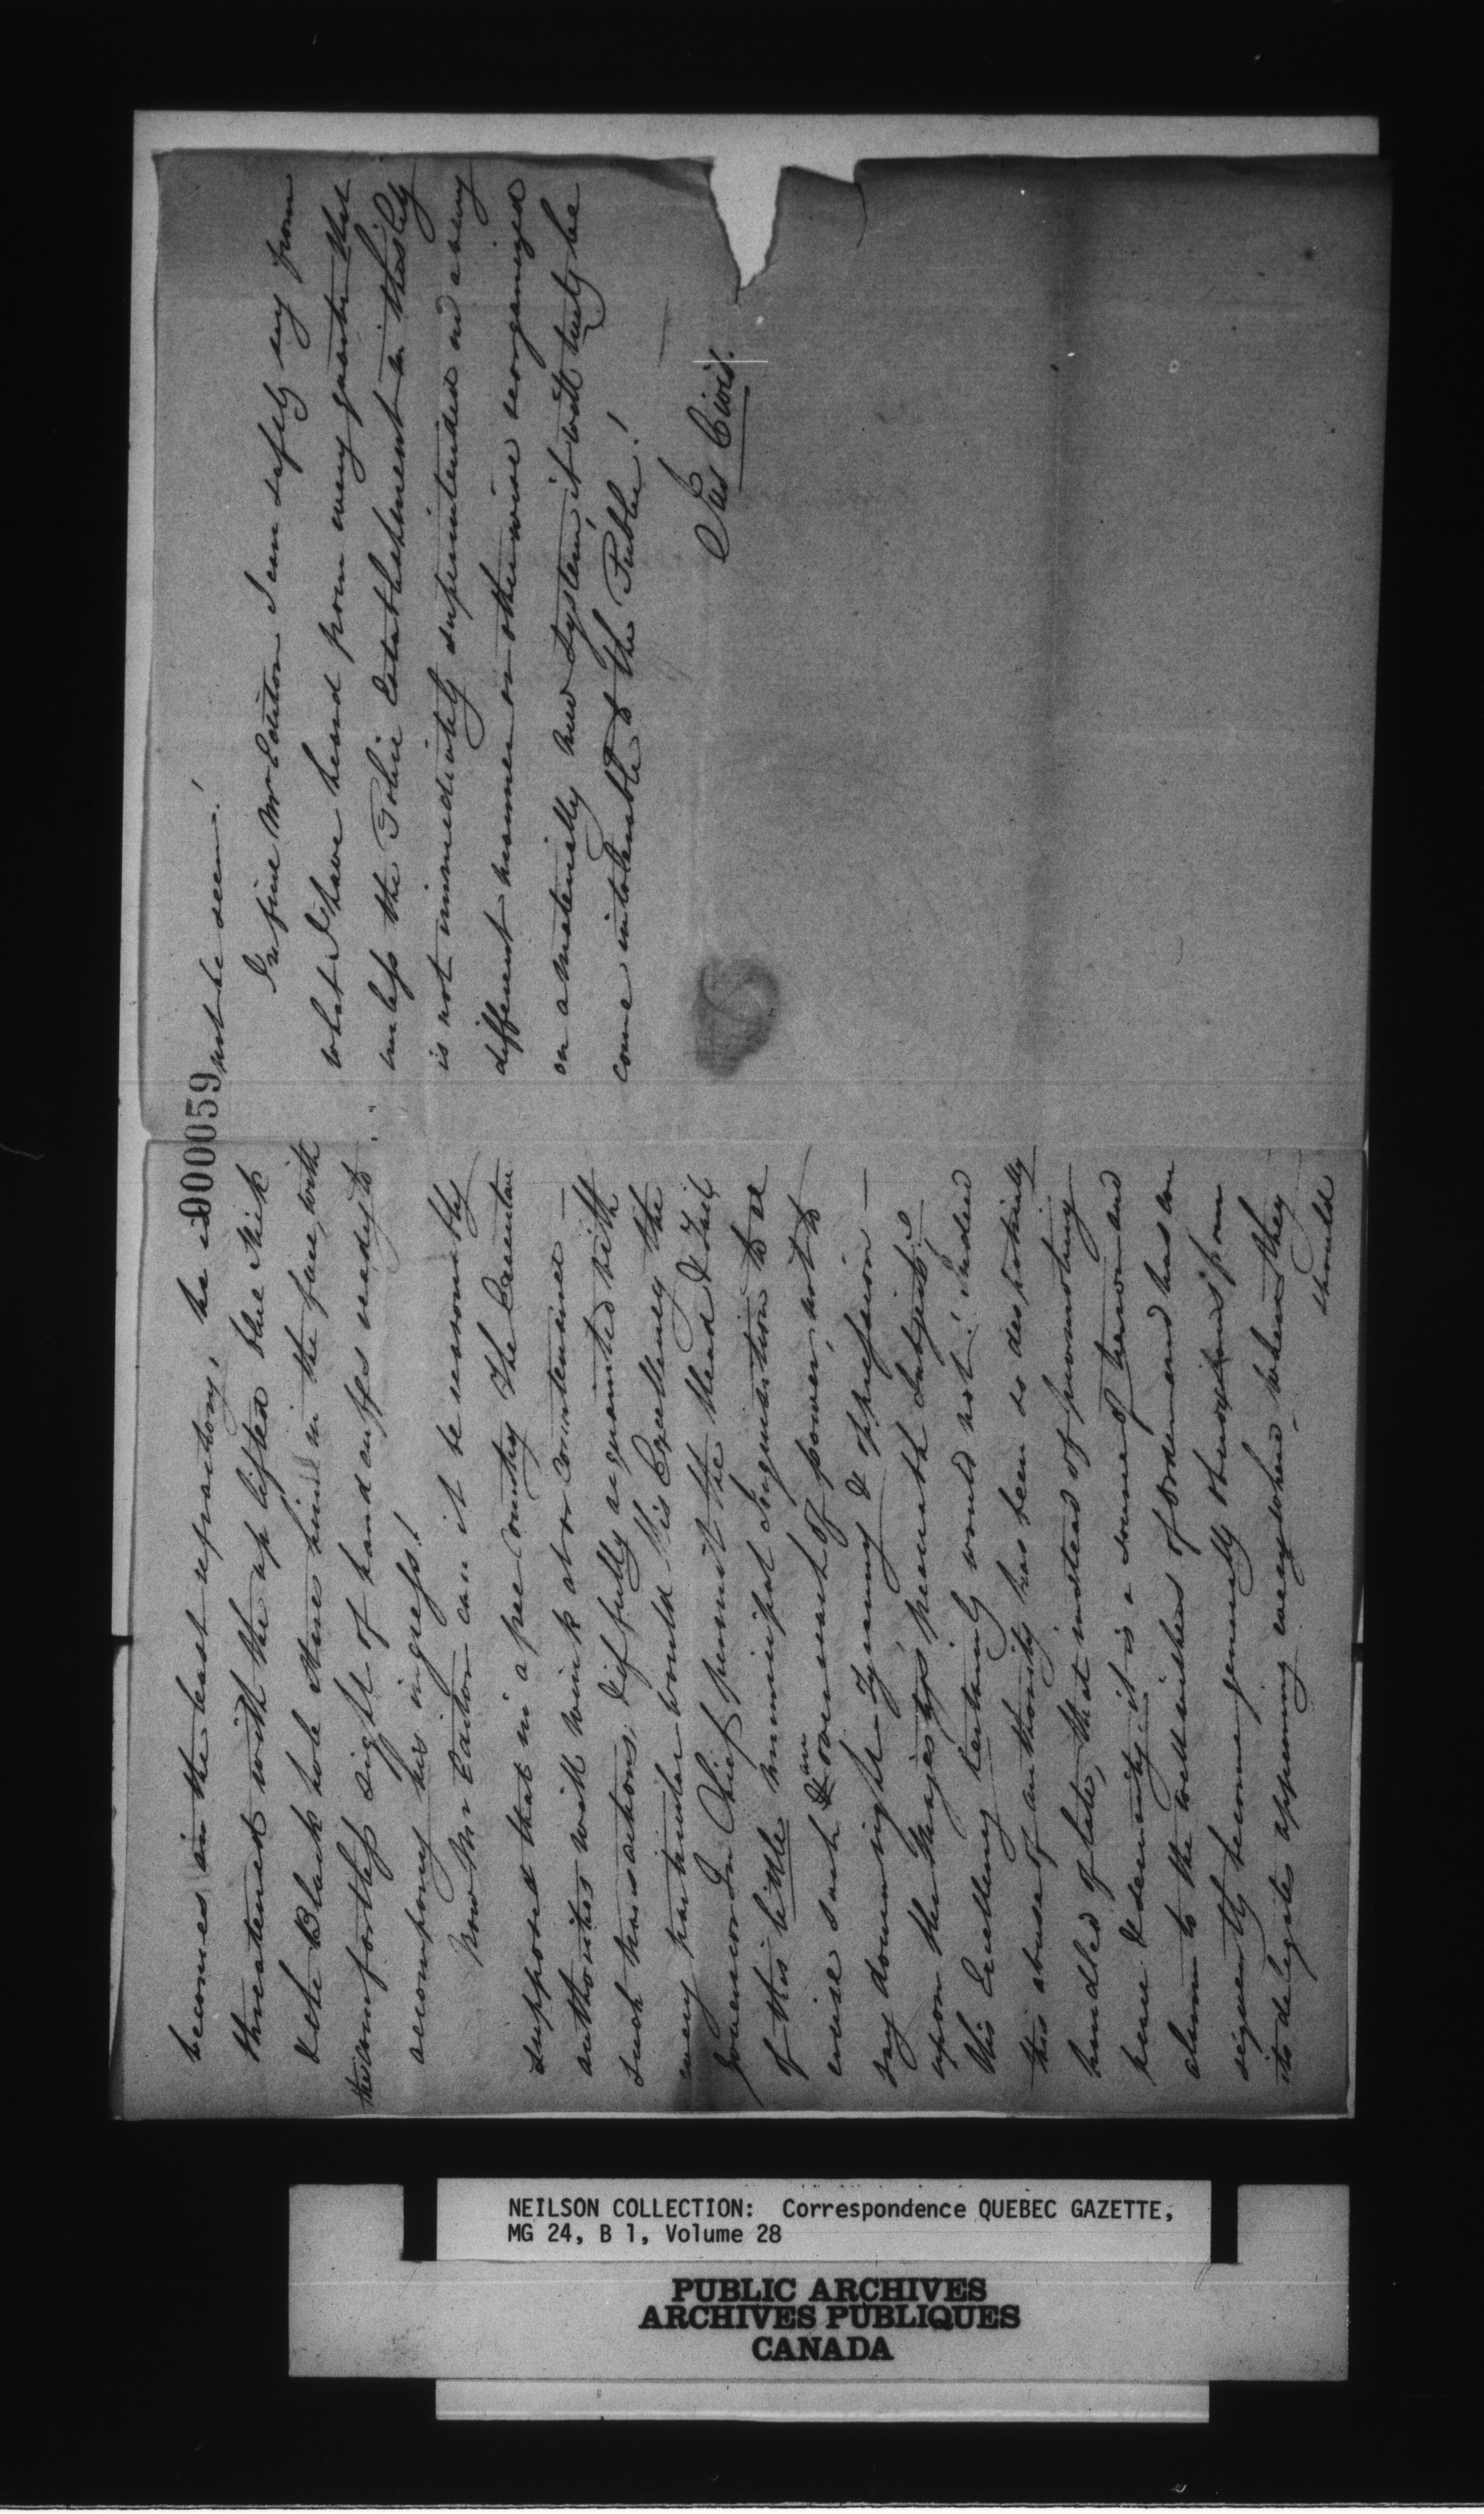 becomes in the least refractory, he is
threatened with the up lifted blue stick
& the Black hole stares him in the face, with
the comfortless sight of hand cuffs ready to
accompany his ingress!
Now Mr Editor can it be reasonably
supposed that in a free Country The Executive
authorities will wink at or Countenance
such transactions; if fully acquainted with
every particular would His Excellency the
Governor In Chief permit the Head & Tail
of this little municipal Inquisition to ex
ercise such an over reach of power, not to
say downright Tyranny & oppression —
upon the Majestys peaceable Subjects?
His Excellency Certainly would not! Indeed
this abuse of authority has been so despotically
handled of late, that instead of promoting
peace & serenity, it is a source of terror and
alarm to the well wishers of order and has con
sequently become generally obnoxious from
its delegates appearing everywhere where they
should
000059
not be seen!
In fine Mr Editor I can safely say from
what I have heard from every quarter that
unless the Police Establishment in this City
is not immediately superintended in a very
different manner or otherwise reorganized
on a materially new System, it will truly be
come intolerable to the Public!
Jus Civis.
NEILSON COLLECTION: Correspondence QUEBEC GAZETTE,
MG 24, B 1, Volume 28
PUBLIC ARCHIVES
ARCHIVES PUBLIQUES
CANADA